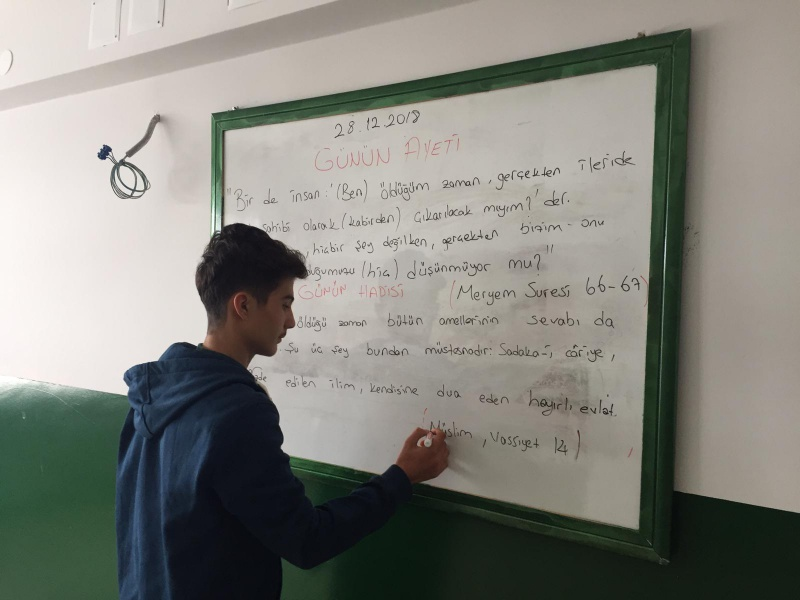 28.12.2018
GÜNÜN AYETİ
"Bir de insan: '(Ben) öldüğüm zaman, gerçekten ileride
sahibi olarak (kabirden) çıkarılacak mıyım?' der.
, hiçbir şey değilken, gerçekten bizim - onu
(hiç) düşünmüyor mu?"
GÜNÜN HADİSİ (Meryem Suresi 66-67)
öldüğü zaman bütün amellerinin sevabı da
Şu üç şey bundan müstesnadır: Sadaka-i câriye,
edilen ilim, kendisine dua eden hayırlı evlat.
(Müslim, Vassiyet 14)